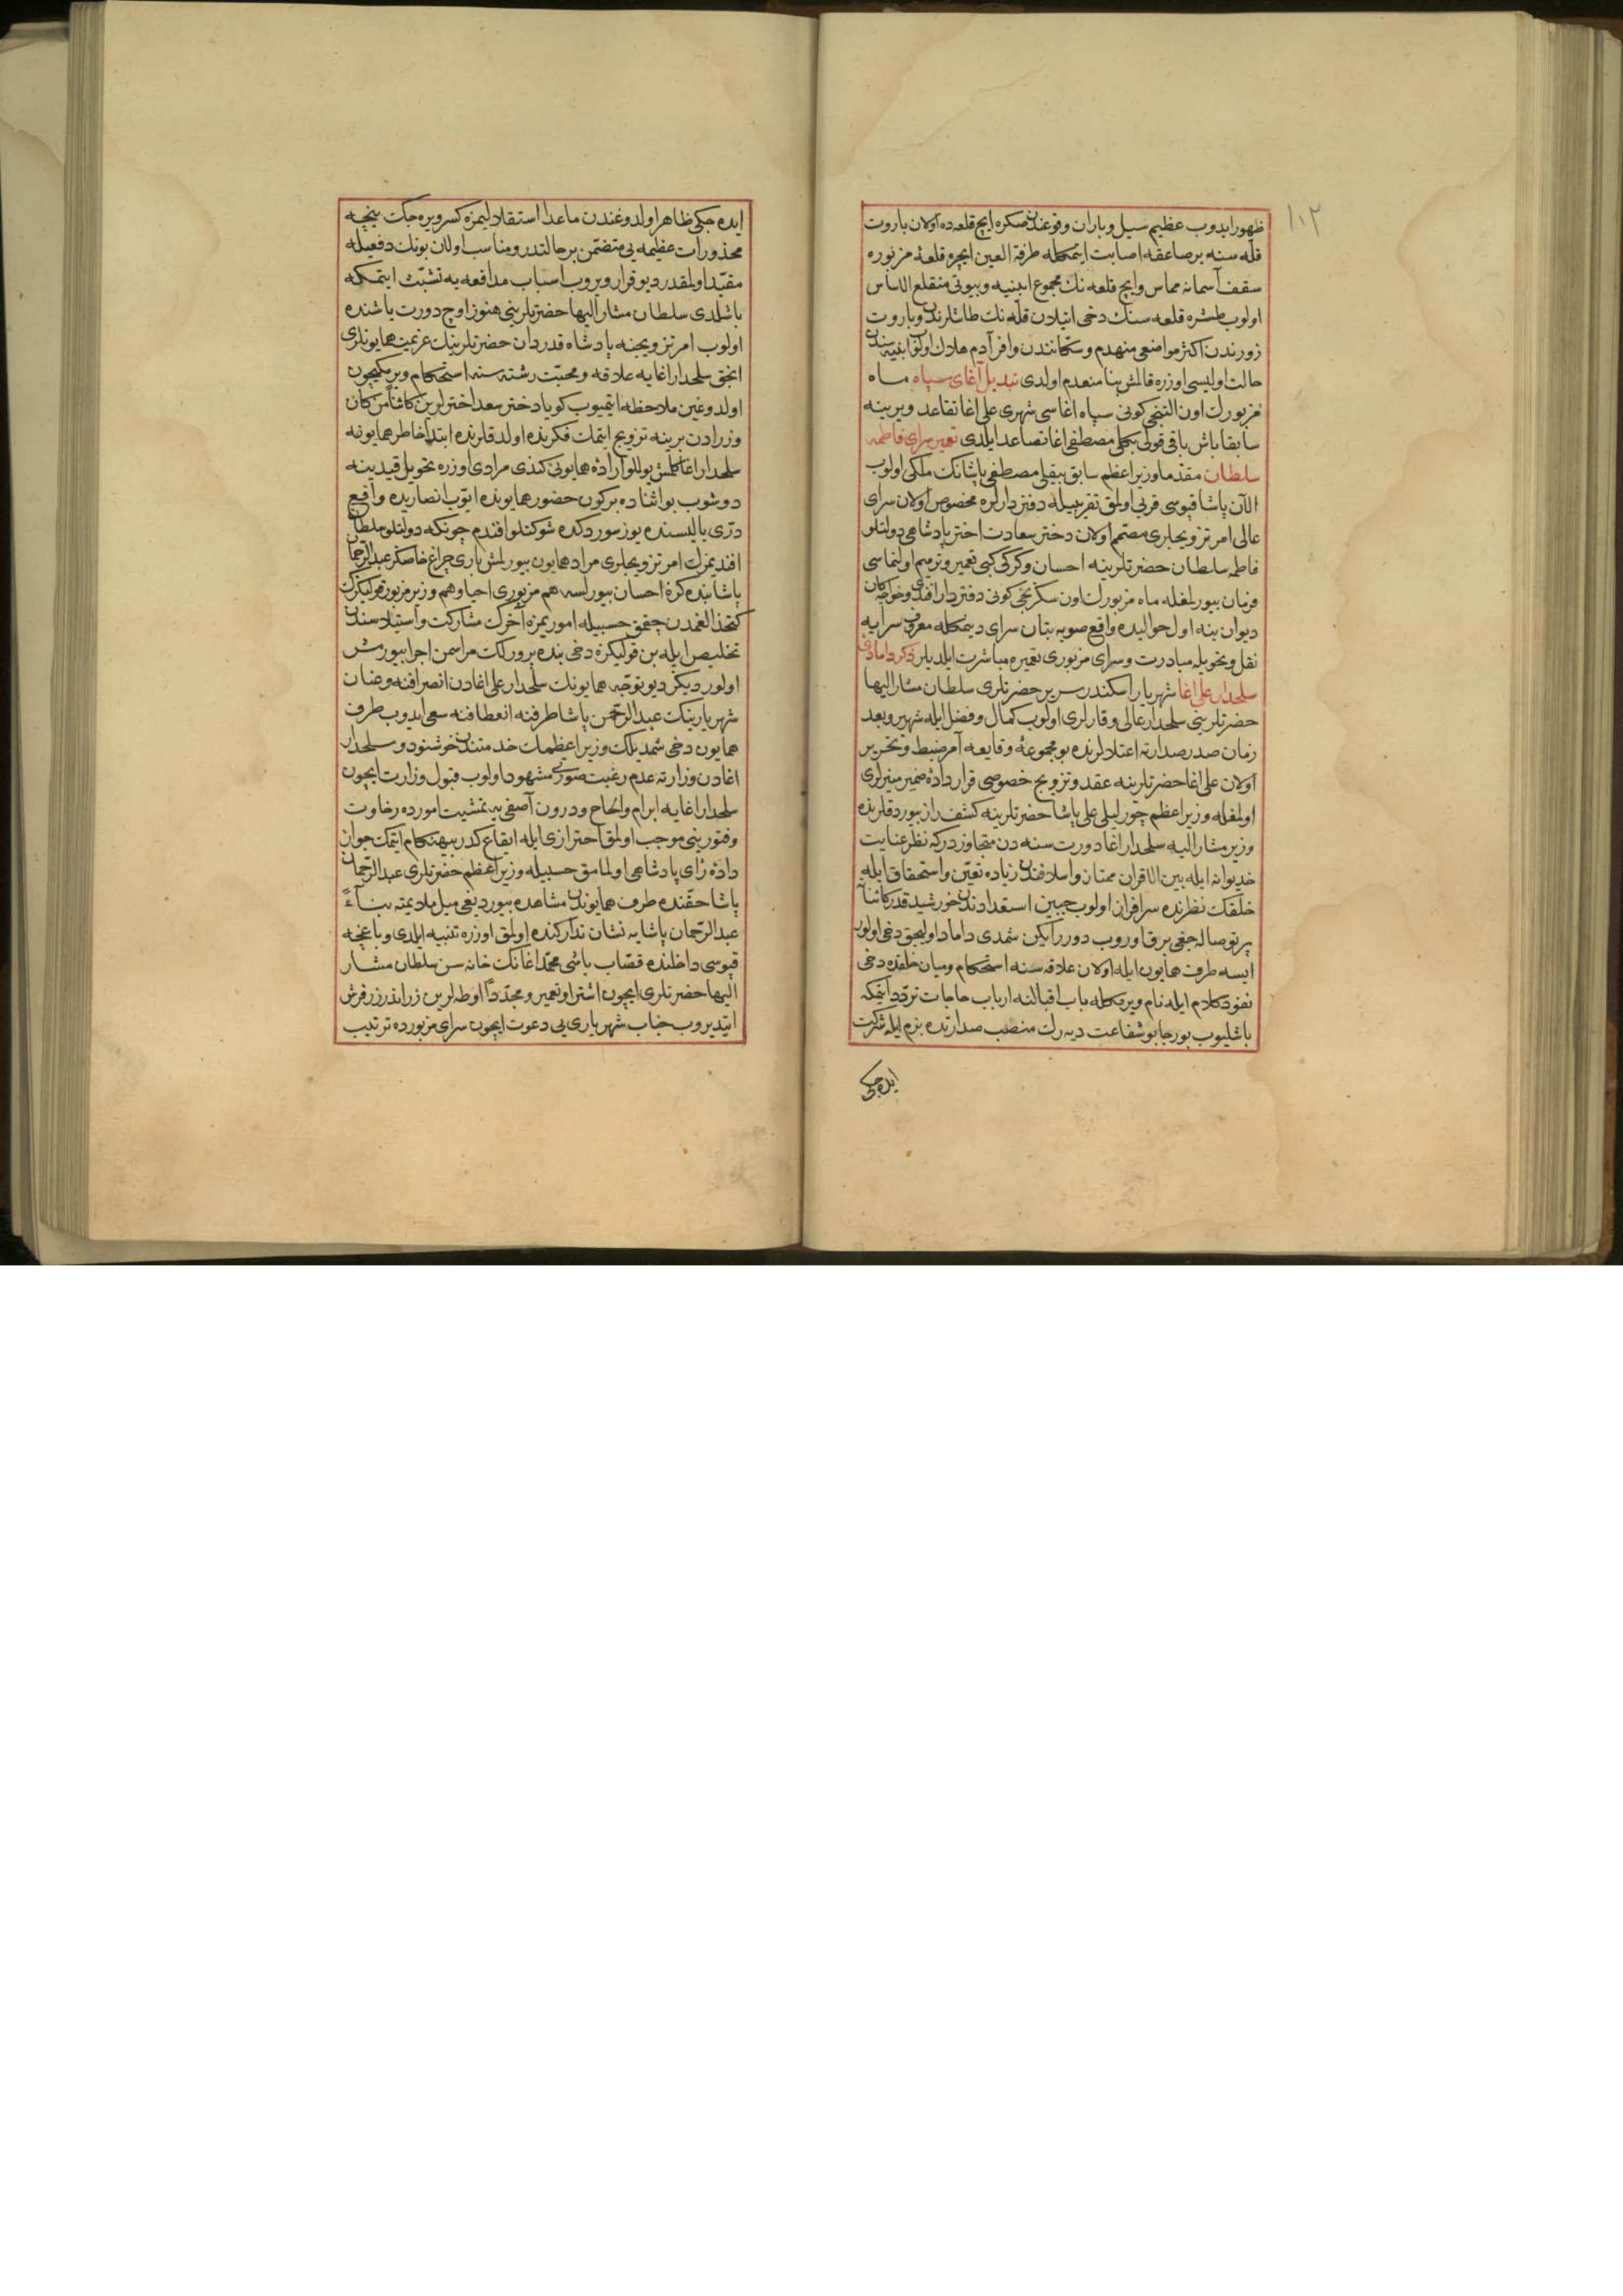 ١٠٢
ظهور ايدوب عظيم سيل وباران وقوعندن صكره ايچ قلعه ده اولان باروت
قله سنه بر صاعقه اصابت ايتمكله طرفة العين ايچره قلعۀ مزبوره
سقف آسمانه مماس وايچ قلعه نك مجموع ابنيه وبيوتى منقلع الاساس
اولوب طشره قلعه سنك دخى انيلان قله نك طاشلرندن وباروت
زورندن اكثر مواضعى منهدم وسكانندن وافر آدم هلاك اولوب ابنيه سندن
حالت اوليسى اوزره قالمش بنا منعدم اولدى تبديل آغاى سپاه ماه
مزبورك اون التنجى كونى سپاه اغاسى شهرى على اغا تقاعد ويرينه
سابقا باش باقى قولى مصطفى اغا تصاعد ايلدى تعمير سراى فاطمه
سلطان مقدما وزير اعظم سابق بيقلى مصطفى پاشانك ملكى اولوب
الآن پاشا قپوسى قربى اولمق تقريبيله دفتردارلره مخصوص اولان سراى
عالى امر تزويجلرى مصمم اولان دختر سعادت اختر پادشاهى دولتلو
فاطمه سلطان حضرتلرينه احسان وكركى كبى تعمير وترميم اولنماسى
فرمان بيورلمغله ماه مزبورك اون سكزنجى كونى دفتردار افندى وخواجكان
ديوان ينه اول حواليده واقع صوبه بتان سراى ديمكله معروف سرايه
نقل وتحويله مبادرت وسراى مزبورى تعميره مباشرت ايلديلر ذكر دامادى
سلحدار على اغا شهريار اسكندر سرير حضرتلرى سلطان مشار اليها
حضرتلرينى سلحدار عالى وقارلرى اولوب كمال وفضل ايله شهير وبعد
زمان صدر صدارته اعتلالرنده بو مجموعۀ وقايعه آمر ضبط وتحرير
اولان على اغا حضرتلرينه عقد وتزويج خصوصى قرار دادۀ ضمير منيرلرى
اولمغله وزير اعظم چورليلى على پاشا حضرتلرينه كشف راز بيوردقلرنده
وزير مشار اليه سلحدار اغا دورت سنه دن متجاوزدركه نظر عنايت
خديوانه ايله بين الاقران ممتاز واسلافندن زياده تعين واستحقاق ايله
خلقك نظرنده سرافراز اولوب جبين استعدادندن خورشيد قدر كاننا
پرتو صاله جغى برق اوروب دوررايكن شمدى داماد اوليجق دخى اولور
ايسه طرف همايون ايله اولان علاقه سنه استحكام وميان خلقده دخى
نفوذ كلام ايله نام ويرمكله باب اقبالنه ارباب حاجات تردد ايتمكه
باشليوب بو رجا بو شفاعت ديه رك منصب صدارتده بزم ايله شركت
ايده جكى
ايده جكى ظاهر اولدوغندن ماعدا استقلاليمزه كسر ويره جك نيچه
محذورات عظيمه يى متضمن بر حالتدر ومناسب اولان بونك دفعيله
مقيد اولمقدر ديو قرار ويروب اسباب مدافعه يه تشبث ايتمكه
باشلدى سلطان مشار اليها حضرتلرينى هنوز اوچ دورت ياشنده
اولوب امر تزويجنه پادشاه قدردان حضرتلرينك عزيمت همايونلرى
انجق سلحدار اغايه علاقه ومحبت رشته سنه استحكام ويرمكيچون
اولدوغين ملاحظه ايتميوب كويا دختر سعد اخترلرين كائنا من كان
وزرادن برينه تزويج ايتمك فكرنده اولدقلرنده ابتدا خاطر همايونه
سلحدار اغا كلمش بوللو ارادۀ همايونى كندى مرادى اوزره تحويل قيدينه
دوشوب بو اثناده بر كون حضور همايونده ايوب انصاريده واقع
درى ياليسنده يوز سوردكده شوكتلو افندم چونكه دولتلو سلطان
افنديمزك امر تزويجلرى مراد همايون بيورلمش بارى چراغ خاصكز عبد الرحمان
پاشا بنده كزه احسان بيورلسه هم مزبورى احيا وهم وزير مزبور قولكزك
كتخدالغمدن چقمق حسبيله اموريمزه آخرك مشاركت واستيلاسندن
تخليص ايله بن قولكزه دخى بنده پرورلك مراسمن اجرا بيورمش
اولورديكز ديو توجه همايونك سلحدار على اغادن انصرافنه وعنان
شهريارينك عبد الرحمن پاشا طرفنه انعطافنه سعى ايدوب طرف
همايون دخى شمديلك وزير اعظمك خدمتندن خوشنود وسلحدار
اغادن وزارته عدم رغبت صورتى مشهود اولوب قبول وزارت ايچون
سلحدار اغايه ابرام والحاح ودرون آصفى يه تمشيت امورده رخاوت
وفتورينى موجب اولمق احترازى ايله ايقاع كدر بيهنكام ايتمك جواز
دادۀ راى پادشاهى اولمامق حسبيله وزير اعظم حضرتلرى عبد الرحمان
پاشا حقنده طرف همايوندن مشاهده بيورديغى ميل ملايمته بناءً
عبد الرحمان پاشايه نشان تداركنده اولمق اوزره تنبيه ايلدى وباغچه
قپوسى داخلنده قصاب باشى محمد اغانك خانه سن سلطان مشار
اليها حضرتلرى ايچون اشترا وتعمير ومجدداً اوطه لرين زر اندر زر فرش
ايتديروب جناب شهريارى يى دعوت ايچون سراى مزبورده ترتيب